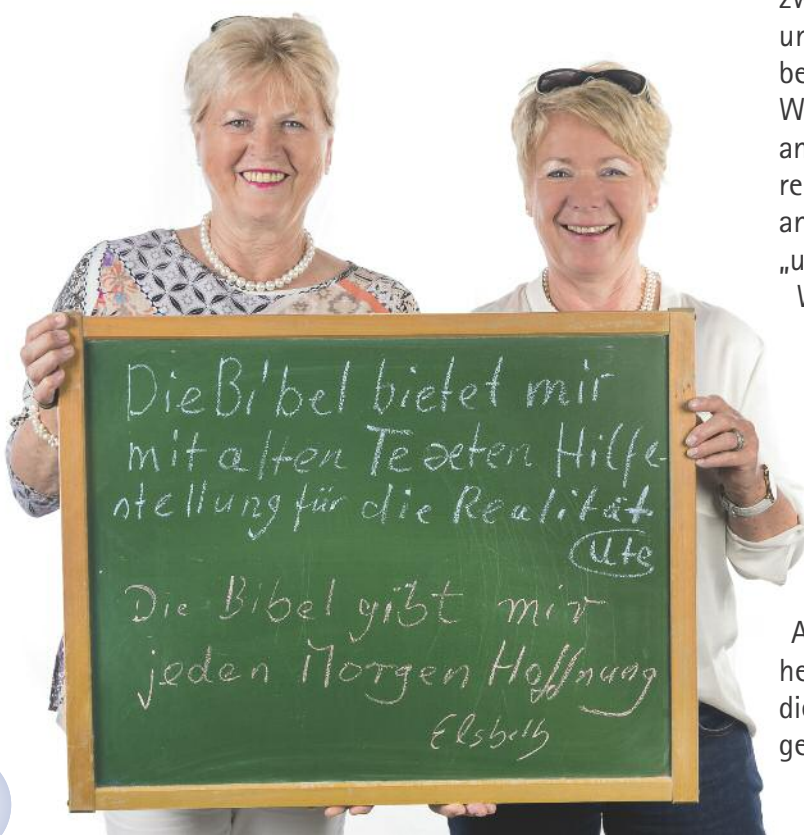 Die Bibel bietet mir
mit alten Texten Hilfe-
stellung für die Realität
Ute
Die Bibel gibt mir
jeden Morgen Hoffnung
Elsbeth
be
re
„u
A
he
die
ge